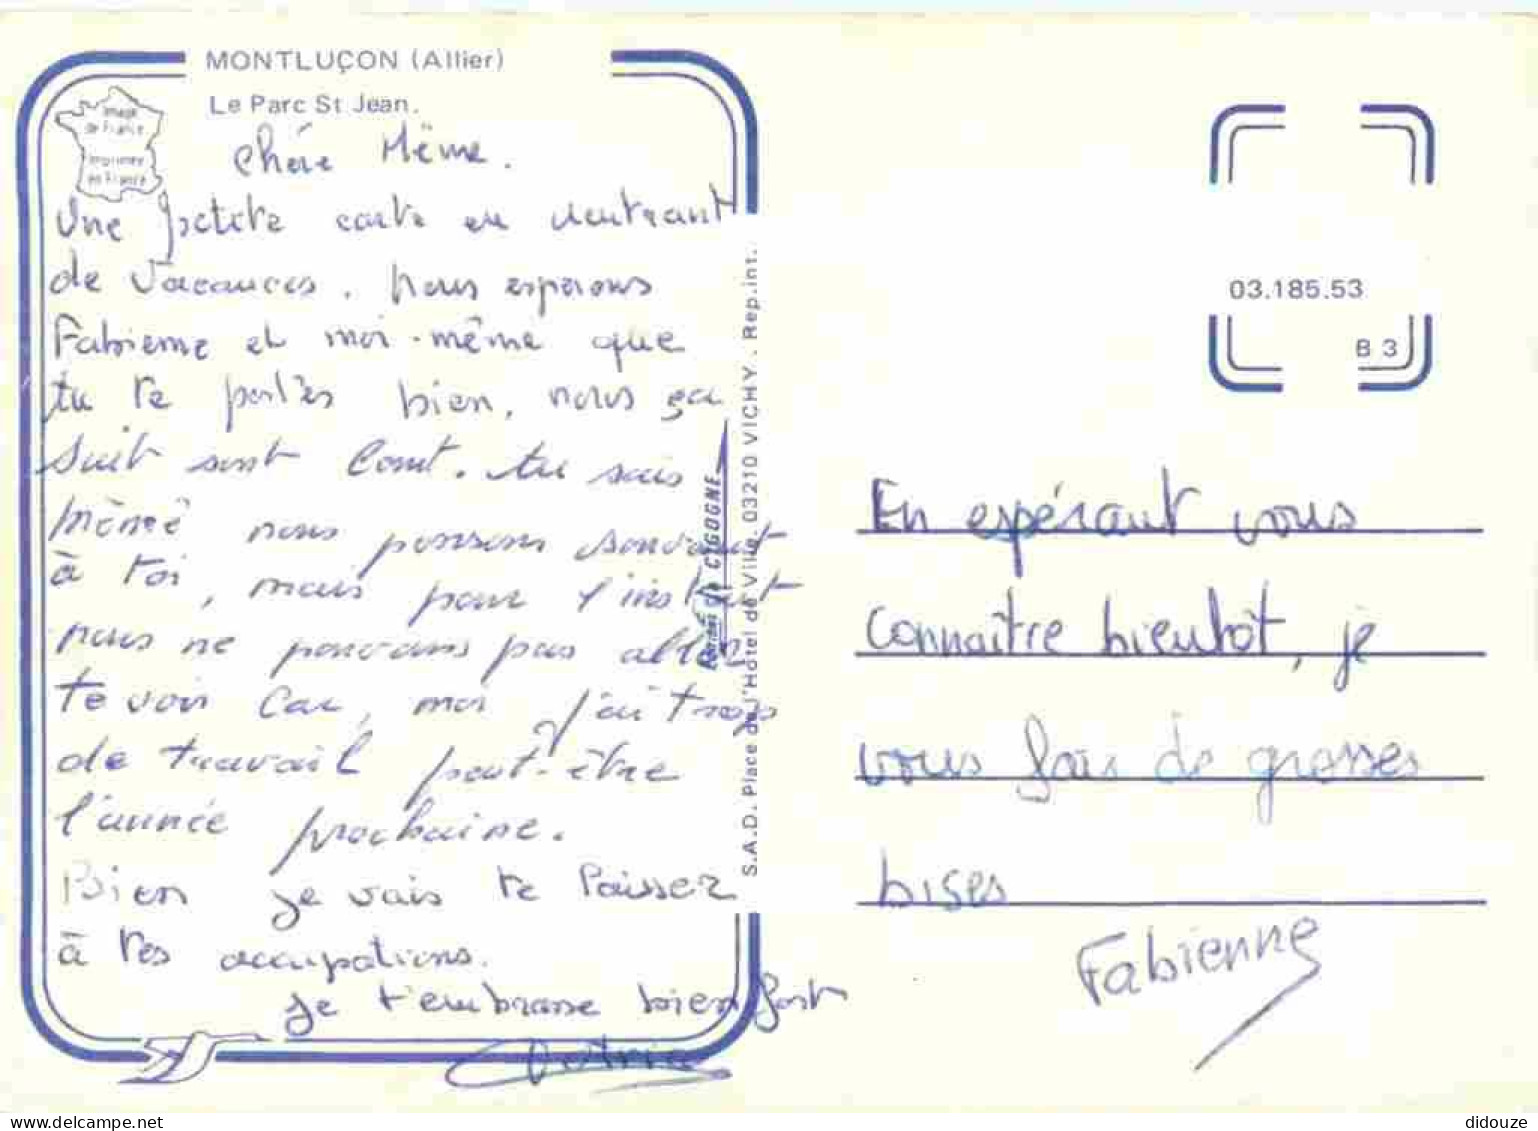 MONTLUÇON (Allier)
Le Parc St Jean.
Image
de France
Imprimée
en France
Chére Même.
Une petite carte en rentrant
de vacances. Nous esperons
Fabienne et moi-même que
tu te portes bien, nous ça
suit sont
tu sais
mémé nous pensons souvent
à toi, mais pour l'instant
nous ne pouvons pas aller
te voir car, moi j'ai trop
de travail peut-être
l'année prochaine.
Bien je vais te laisser
à tes occupations.
Je t'embrasse bien fort
S.A.D. Place de l'Hôtel de Ville, 03210 VICHY. Rep.int.
CIGOGNE
03.185.53
B 3
En espérant vous
connaître bientôt, je
vous fais de grosses
bises
Fabienne
didouze